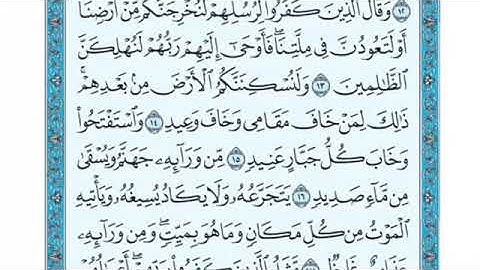 ١٢ وَقَالَ ٱلَّذِينَ كَفَرُوا۟ لِرُسُلِهِمْ لَنُخْرِجَنَّكُم مِّنْ أَرْضِنَآ
أَوْ لَتَعُودُنَّ فِى مِلَّتِنَا ۖ فَأَوْحَىٰٓ إِلَيْهِمْ رَبُّهُمْ لَنُهْلِكَنَّ
ٱلظَّـٰلِمِينَ ١٣ وَلَنُسْكِنَنَّكُمُ ٱلْأَرْضَ مِنۢ بَعْدِهِمْ ۚ
ذَٰلِكَ لِمَنْ خَافَ مَقَامِى وَخَافَ وَعِيدِ ١٤ وَٱسْتَفْتَحُوا۟
وَخَابَ كُلُّ جَبَّارٍ عَنِيدٍ ١٥ مِّن وَرَآئِهِۦ جَهَنَّمُ وَيُسْقَىٰ
مِن مَّآءٍ صَدِيدٍ ١٦ يَتَجَرَّعُهُۥ وَلَا يَكَادُ يُسِيغُهُۥ وَيَأْتِيهِ
ٱلْمَوْتُ مِن كُلِّ مَكَانٍ وَمَا هُوَ بِمَيِّتٍ ۖ وَمِن وَرَآئِهِۦ